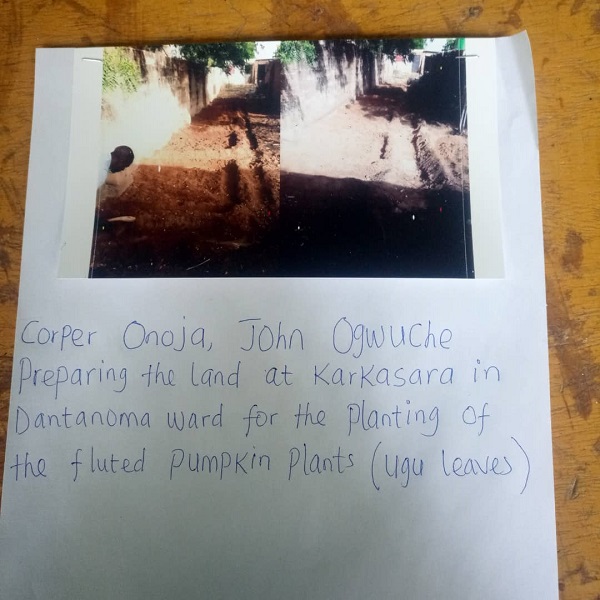 Corper Onoja, John Ogwuche
Preparing the land at Karkasara in
Dantanoma ward for the planting of
the fluted pumpkin plants (ugu leaves)